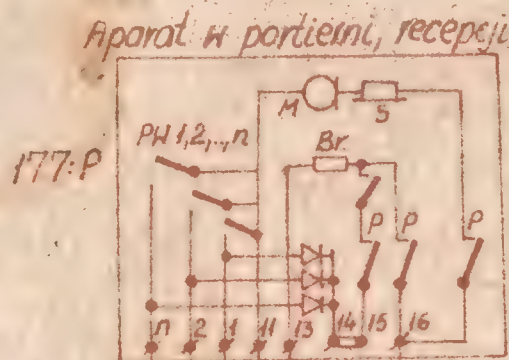 Aparat w portierni, recepcji
M S
PW 1,2,..,n
Br.
177:P
P P P
n 2 1 11 13 14 15 16